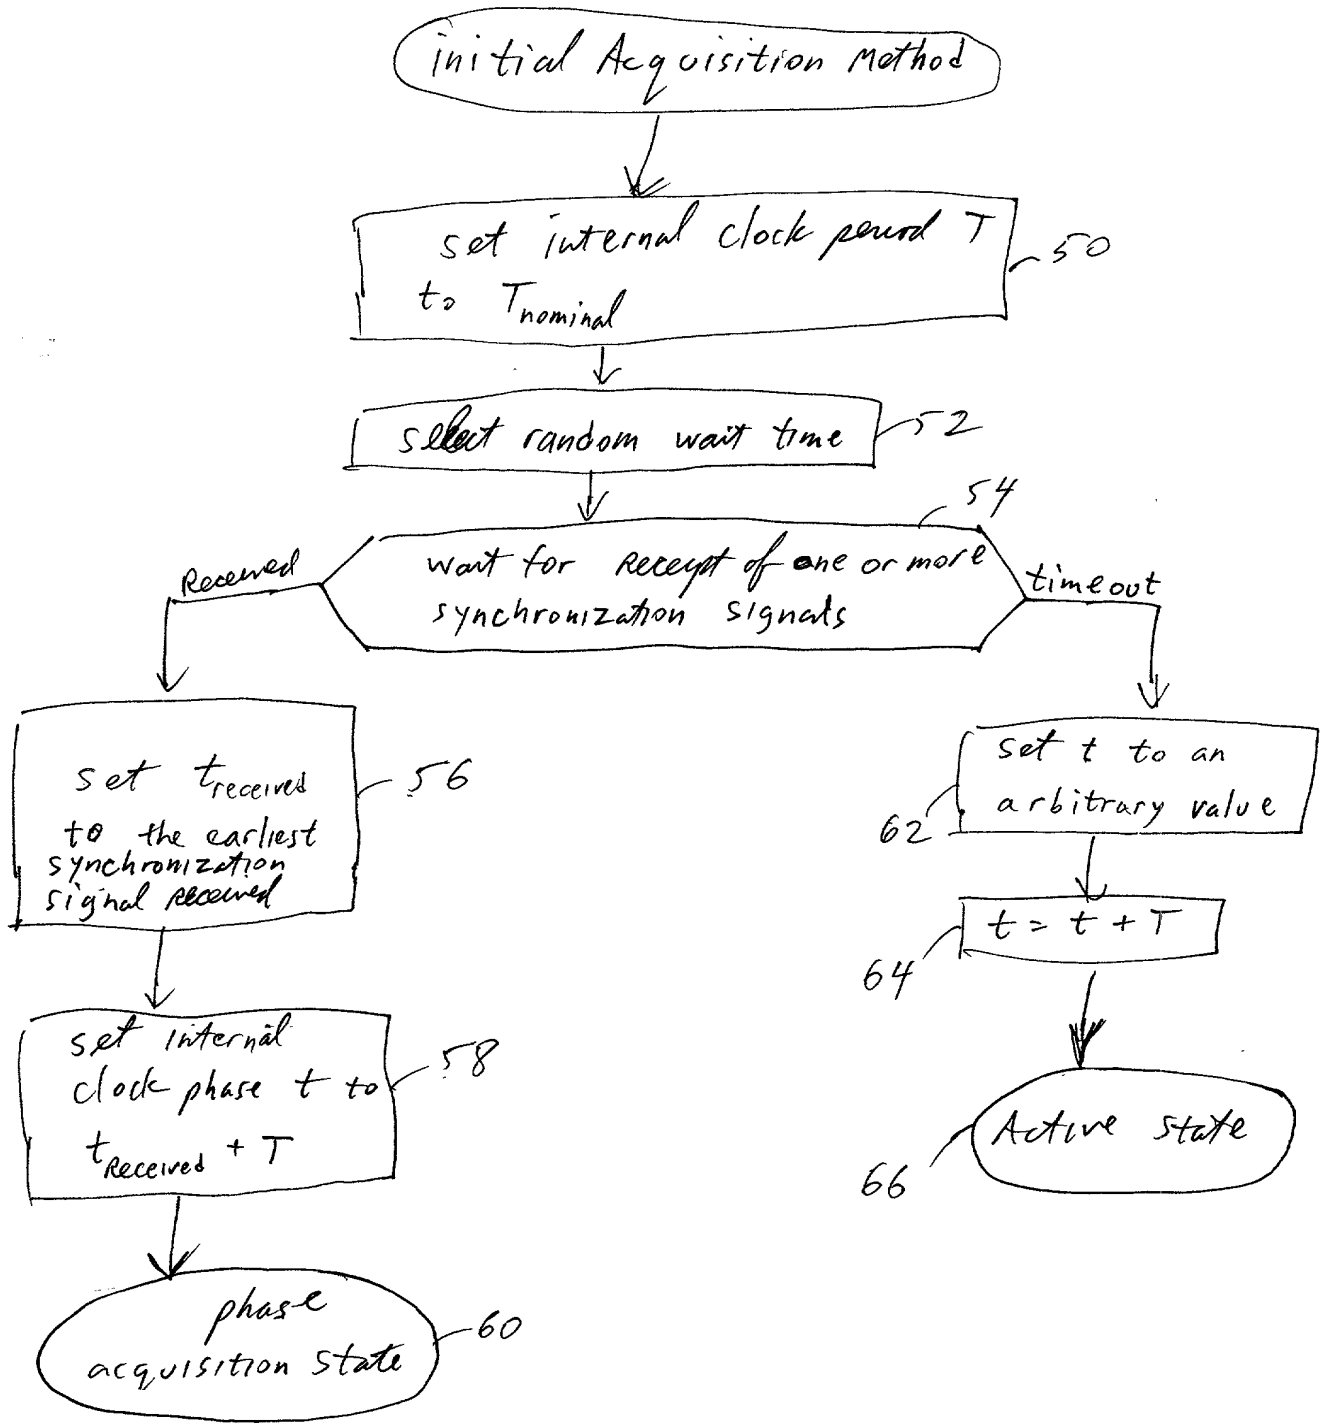 initial Acquisition Method
set internal clock period T
to Tnominal
50
select random wait time
52
54
wait for Receipt of one or more
synchronization signals
Received
timeout
set treceived
to the earliest
synchronization
signal received
56
set internal
clock phase t to
tReceived + T
58
phase
acquisition state
60
set t to an
arbitrary value
62
t = t + T
64
Active state
66